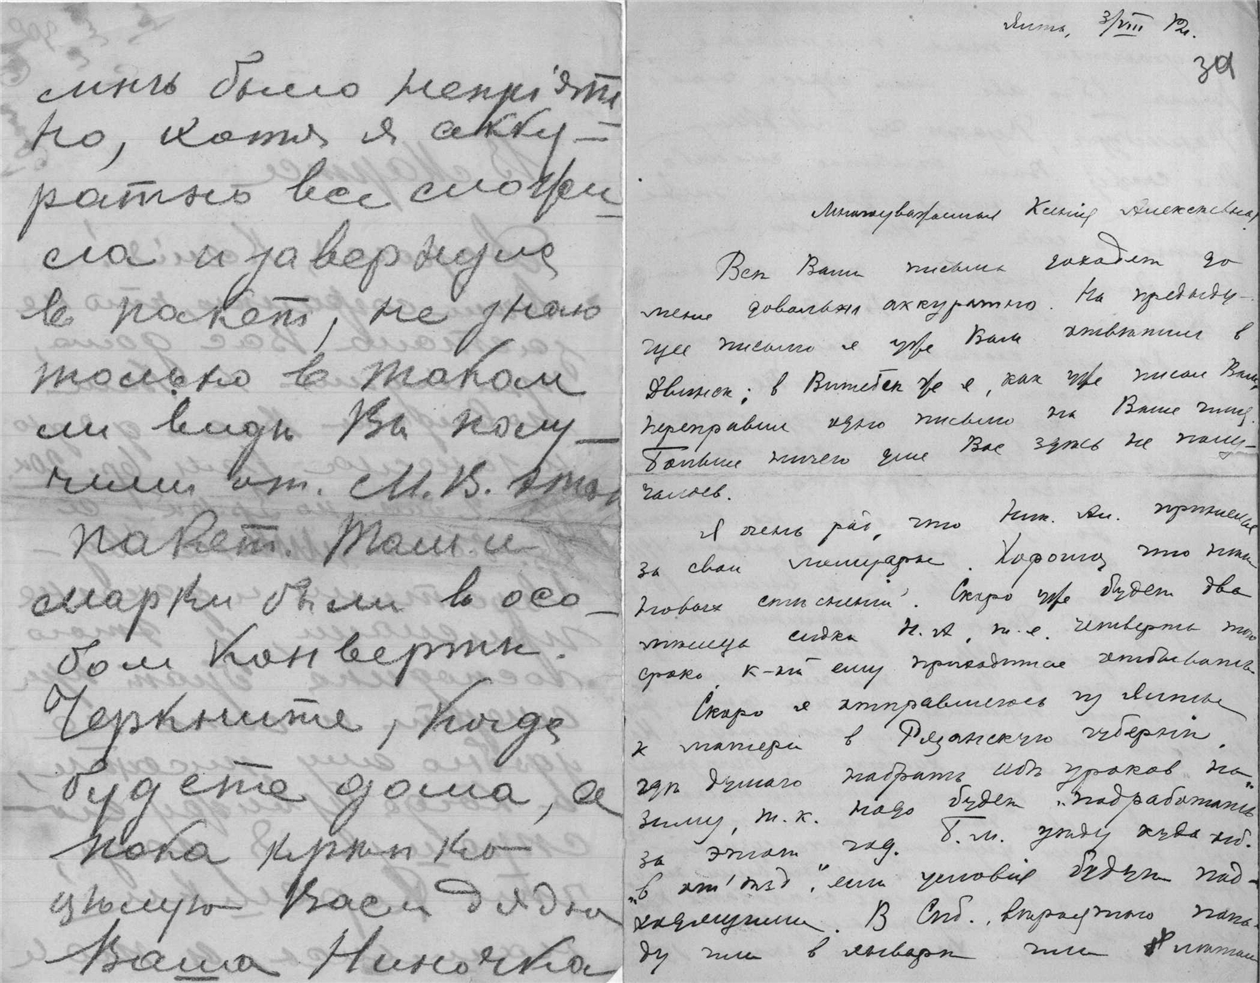 мнѣ было непрiятн
но, хотя я акку-
ратно все смотри-
ла и завернула
въ пакетъ, не знаю
только въ такомъ
ли видѣ Вы полу-
чили от. М. В. этотъ
пакет. Тамъ и
марки были въ осо-
бомъ конвертѣ.
Черкните, когда
будете дома, а
пока крѣпко
цѣлую Васъ и дядю
Ваша Ниночка
Ялта, 3/VIII 12г.
39
Многоуважаемая Ксенiя Алексѣевна,
Всѣ Ваши письма доходят до
меня довольно аккуратно. На предыду-
щее письмо я уже Вам отвѣтил в
Двинск; в Витебск же я, как уже писал Вам,
переправил одно письмо на Ваше имя.
Больше ничего для Вас здѣсь не полу-
чалось.
Я очень рад, что Ник. Ал. принялся
за свои мемуары. Хорошо, что нѣт
новых стѣсненiй. Скоро уже будет два
мѣсяца сидки Н. А, т. е. четверть того
срока, к-ый ему приходится отбывать.
Скоро я отправляюсь из Ялты
к матери в Рязанскую губернiю,
гдѣ думаю набрать уроков на
зиму, т. к. надо будет „подработать"
за этот год. Б. м. уѣду куда ниб.
„в отъѣзд", если условiя будут под-
ходящими. В Спб. вѣроятно попа-
ду или в январѣ или